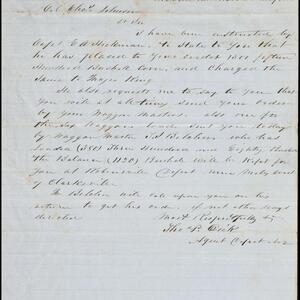 Col. Chas. Johnson
Dr Sir
I have been instructed by
Capt. E. A. Hickman to State to you that
he has placed to your credit 1500 fifteen
Hundred Bushels Corn, and Charged the
Same to Major King
He also requests me to say to you that
you will at any time send your orders
by your Waggon Masters also one for
the Six Waggons sent you today
by Waggon Master who has
Loaded (380) Three Hundred and Eighty Bushels
the Balance (1120) Bushels will be Kept for
you at Depot nine Miles
of Clarksville
will call upon you on his
return to get his orders if not otherwise
directed
Most Respectfully &c
Thos P. Dick
Agent